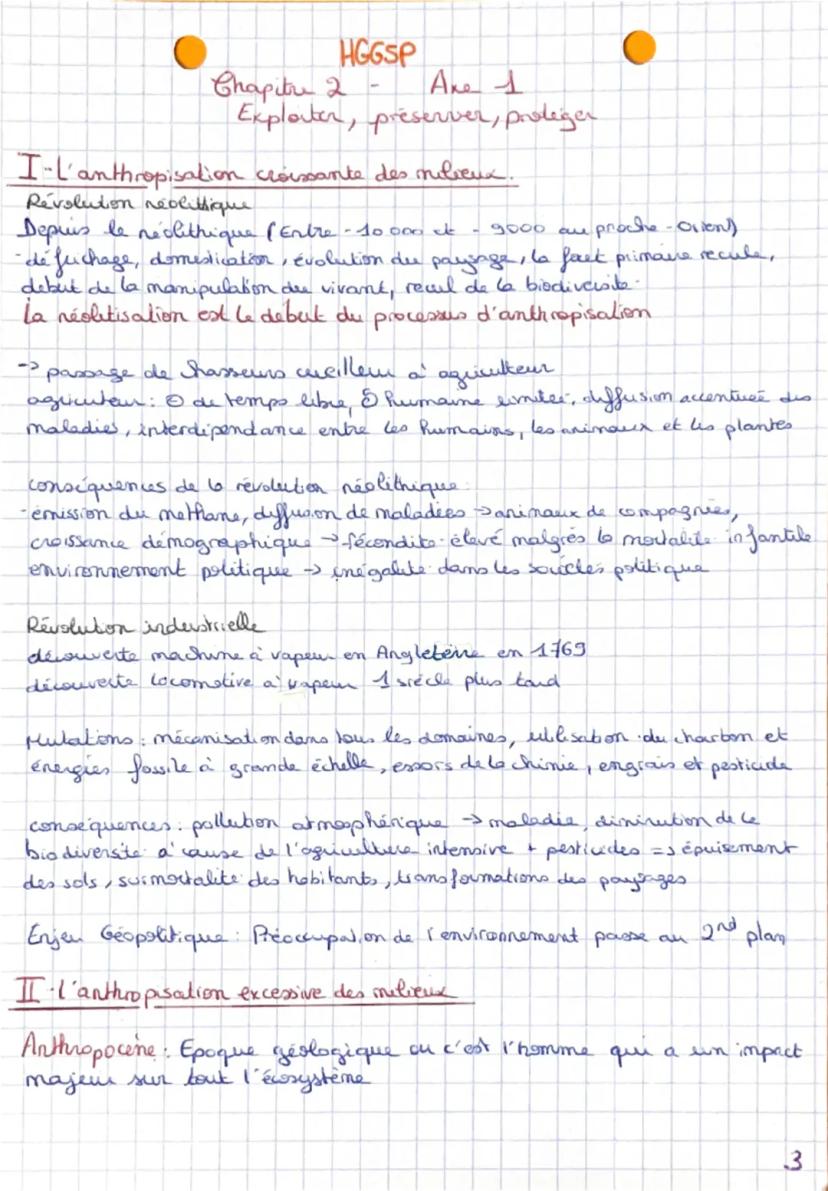 HGGSP
Chapitre 2 - Axe 1
Exploiter, préserver, protéger
I-L'anthropisation croissante des milieux.
Révolution néolithique
Depuis le néolithique (Entre -10 000 et - 9000 au proche-Orient)
-défrichage, domestication, évolution du paysage, la foret primaire recule,
debut de la manipulation du vivant, recul de la biodiversite.
La néolitisation est le debut du processus d'anthropisation
-> passage de chasseurs cueilleur à agriculteur
agriculteur: ⊖ de temps libre, humaine limiter, diffusion accentueé des
maladies, interdépendance entre les humains, les animaux et les plantes
conséquences de la révolution néolithique:
-émission du methane, diffusion de maladies -> animaux de compagnies,
croissance démographique -> fécondite élevé malgrés la mortalité infantile
environnement politique -> inégalité dans les sociétés politique
Révolution industrielle
découverte machine à vapeur en Angleterre en 1769
découverte locomotive à vapeur 1 siècle plus tard
Mutations : mécanisation dans tous les domaines, utilisation du charbon et
énergies fossile à grande échelle, essors de la chimie, engrais et pesticide
conséquences : pollution atmosphérique -> maladie, diminution de la
biodiversité à cause de l'agriculture intensive + pesticides => épuisement
des sols, surmortalité des habitants, transformations des paysages
Enjeu Géopolitique : Préoccupation de l'environnement passe au 2nd plan
II-l'anthropisation excessive des milieux
Anthropocène : Epoque géologique ou c'est l'homme qui a un impact
majeur sur tout l'écosystème
3